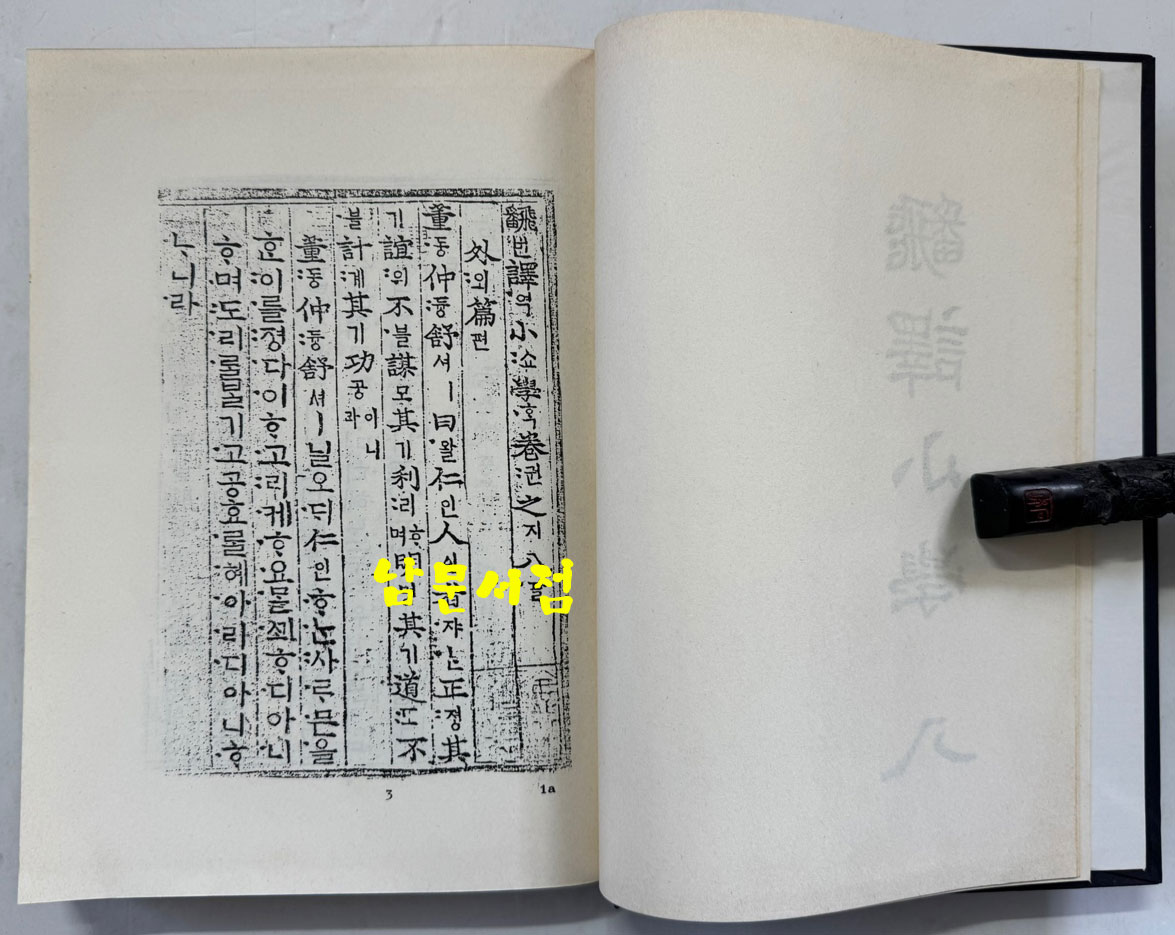 飜번譯역小쇼學ᄒᆞᆨ卷권之지八팔
外외篇편
董동仲듕舒셔ㅣ曰왈仁인人쟈ᄂᆞᆫ正졍其
기誼의不블謀모其기利리ᄒᆞ며明其기道도不
블計계其기功공이니라
董동仲듕舒셔ㅣ닐오ᄃᆡ仁인ᄒᆞᄂᆞᆫ사ᄅᆞᄆᆞᆫ올
ᄒᆞᆫ이를졍다이ᄒᆞ고리케ᄒᆞ요ᄆᆞᆯᄭᅬᄒᆞ디아니
ᄒᆞ며도리ᄅᆞᆯᄇᆞᆯ기고공효ᄅᆞᆯ혜아리디아니ᄒᆞ
ᄂᆞ니라
남문서점
3
1a